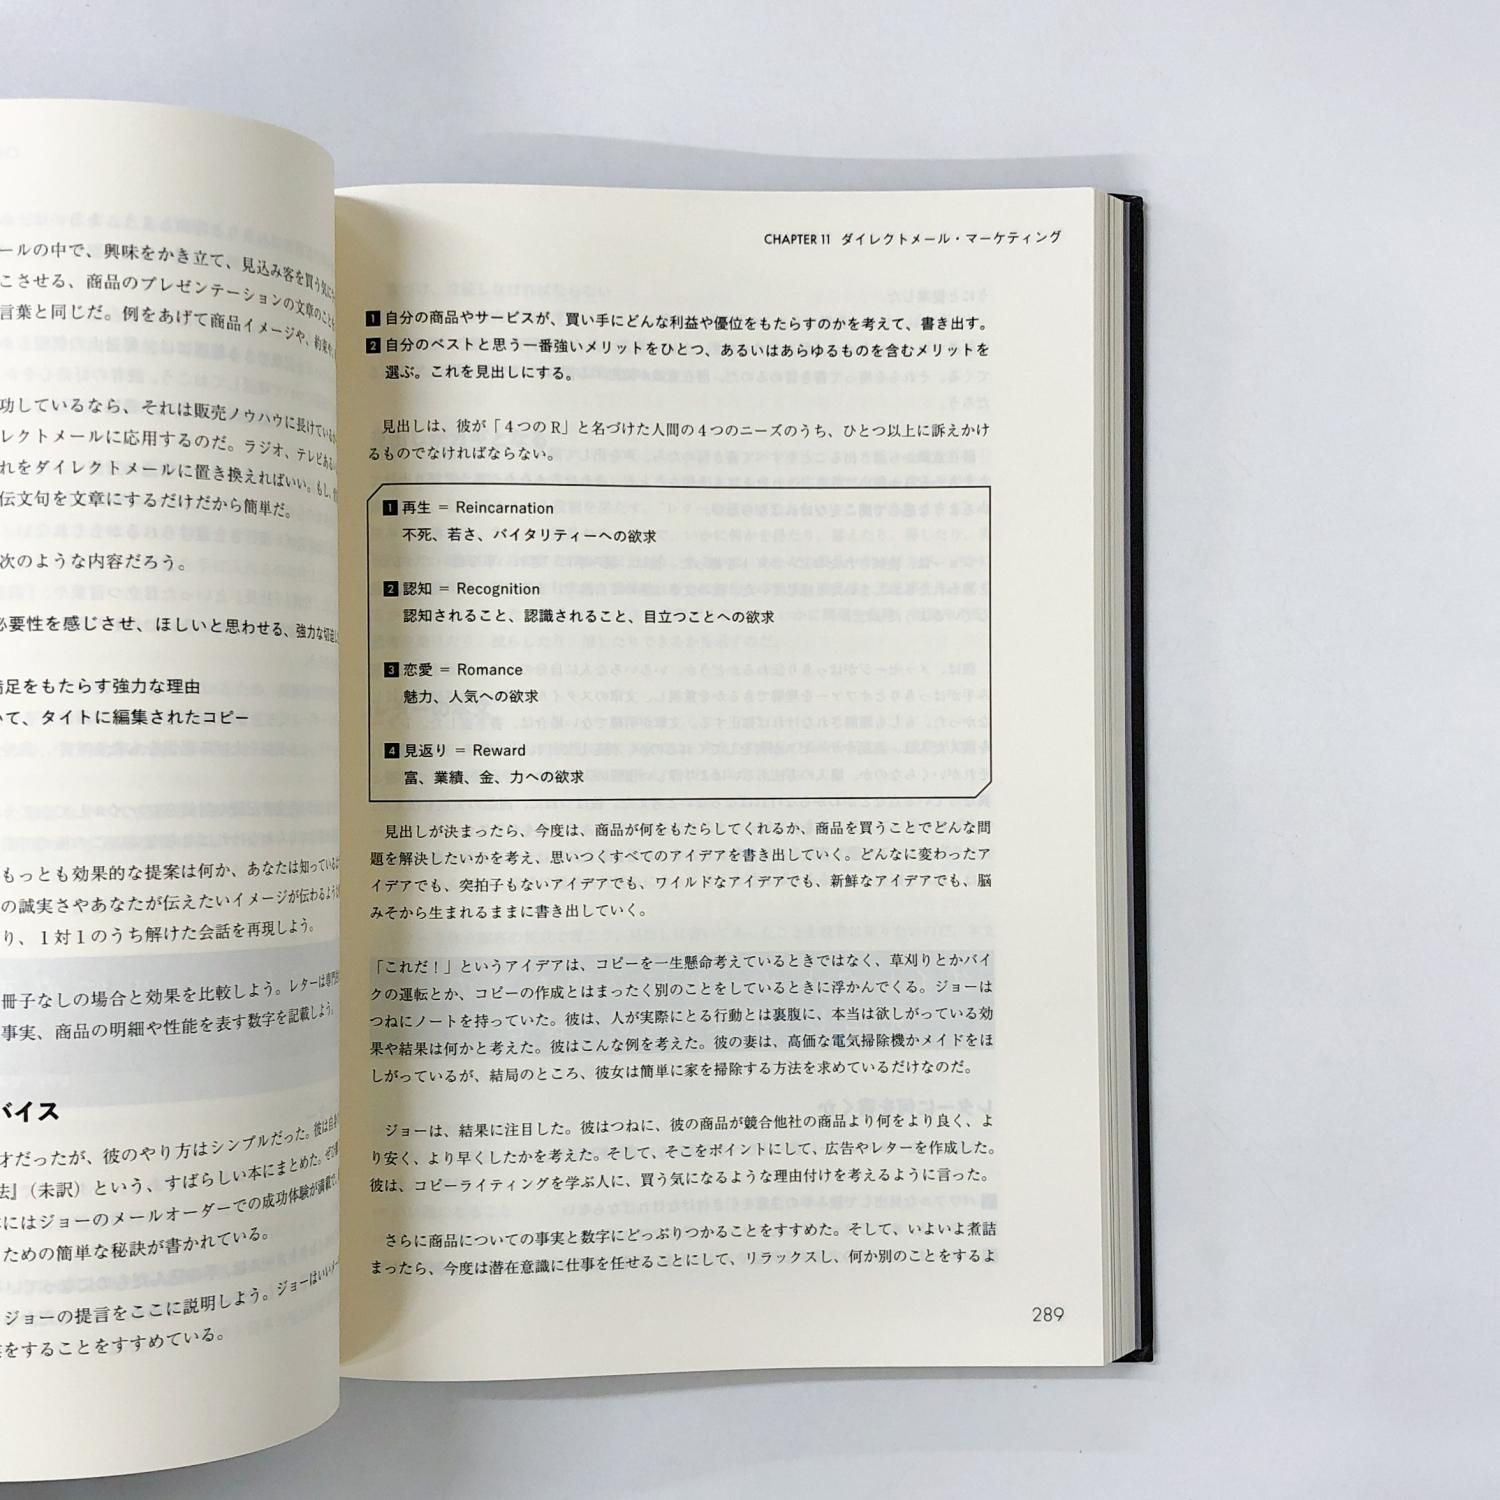 ールの中で、興味をかき立て、見込み客を買う気に
こさせる、商品のプレゼンテーションの文章のことを
言葉と同じだ。例をあげて商品イメージや、約束や、
功しているなら、それは販売ノウハウに長けているか
レクトメールに応用するのだ。ラジオ、テレビある
れをダイレクトメールに置き換えればいい。もし、
伝文句を文章にするだけだから簡単だ。
次のような内容だろう。
必要性を感じさせ、ほしいと思わせる、強力な
足をもたらす強力な理由
いて、タイトに編集されたコピー
もっとも効果的な提案は何か、あなたは知っている
の誠実さやあなたが伝えたいイメージが伝わるよう
り、1対1のうち解けた会話を再現しよう。
冊子なしの場合と効果を比較しよう。レターは専門
事実、商品の明細や性能を表す数字を記載しよう。
バイス
才だったが、彼のやり方はシンプルだった。彼は自
法』(未訳)という、すばらしい本にまとめた。
にはジョーのメールオーダーでの成功体験が満載で、
ための簡単な秘訣が書かれている。
ジョーの提言をここに説明しよう。ジョーはいい
をすることをすすめている。
CHAPTER 11 ダイレクトメール・マーケティング
1 自分の商品やサービスが、買い手にどんな利益や優位をもたらすのかを考えて、書き出す。
2 自分のベストと思う一番強いメリットをひとつ、あるいはあらゆるものを含むメリットを
選ぶ。これを見出しにする。
見出しは、彼が「4つのR」と名づけた人間の4つのニーズのうち、ひとつ以上に訴えかけ
るものでなければならない。
1 再生 = Reincarnation
不死、若さ、バイタリティーへの欲求
2 認知 = Recognition
認知されること、認識されること、目立つことへの欲求
3 恋愛 = Romance
魅力、人気への欲求
4 見返り = Reward
富、業績、金、力への欲求
見出しが決まったら、今度は、商品が何をもたらしてくれるか、商品を買うことでどんな問
題を解決したいかを考え、思いつくすべてのアイデアを書き出していく。どんなに変わったア
イデアでも、突拍子もないアイデアでも、ワイルドなアイデアでも、新鮮なアイデアでも、脳
みそから生まれるままに書き出していく。
「これだ!」というアイデアは、コピーを一生懸命考えているときではなく、草刈りとかバイ
クの運転とか、コピーの作成とはまったく別のことをしているときに浮かんでくる。ジョーは
つねにノートを持っていた。彼は、人が実際にとる行動とは裏腹に、本当は欲しがっている効
果や結果は何かと考えた。彼はこんな例を考えた。彼の妻は、高価な電気掃除機かメイドをほ
しがっているが、結局のところ、彼女は簡単に家を掃除する方法を求めているだけなのだ。
ジョーは、結果に注目した。彼はつねに、彼の商品が競合他社の商品より何をより良く、よ
り安く、より早くしたかを考えた。そして、そこをポイントにして、広告やレターを作成した。
彼は、コピーライティングを学ぶ人に、買う気になるような理由付けを考えるように言った。
さらに商品についての事実と数字にどっぷりつかることをすすめた。そして、いよいよ煮詰
まったら、今度は潜在意識に仕事を任せることにして、リラックスし、何か別のことをするよ
289